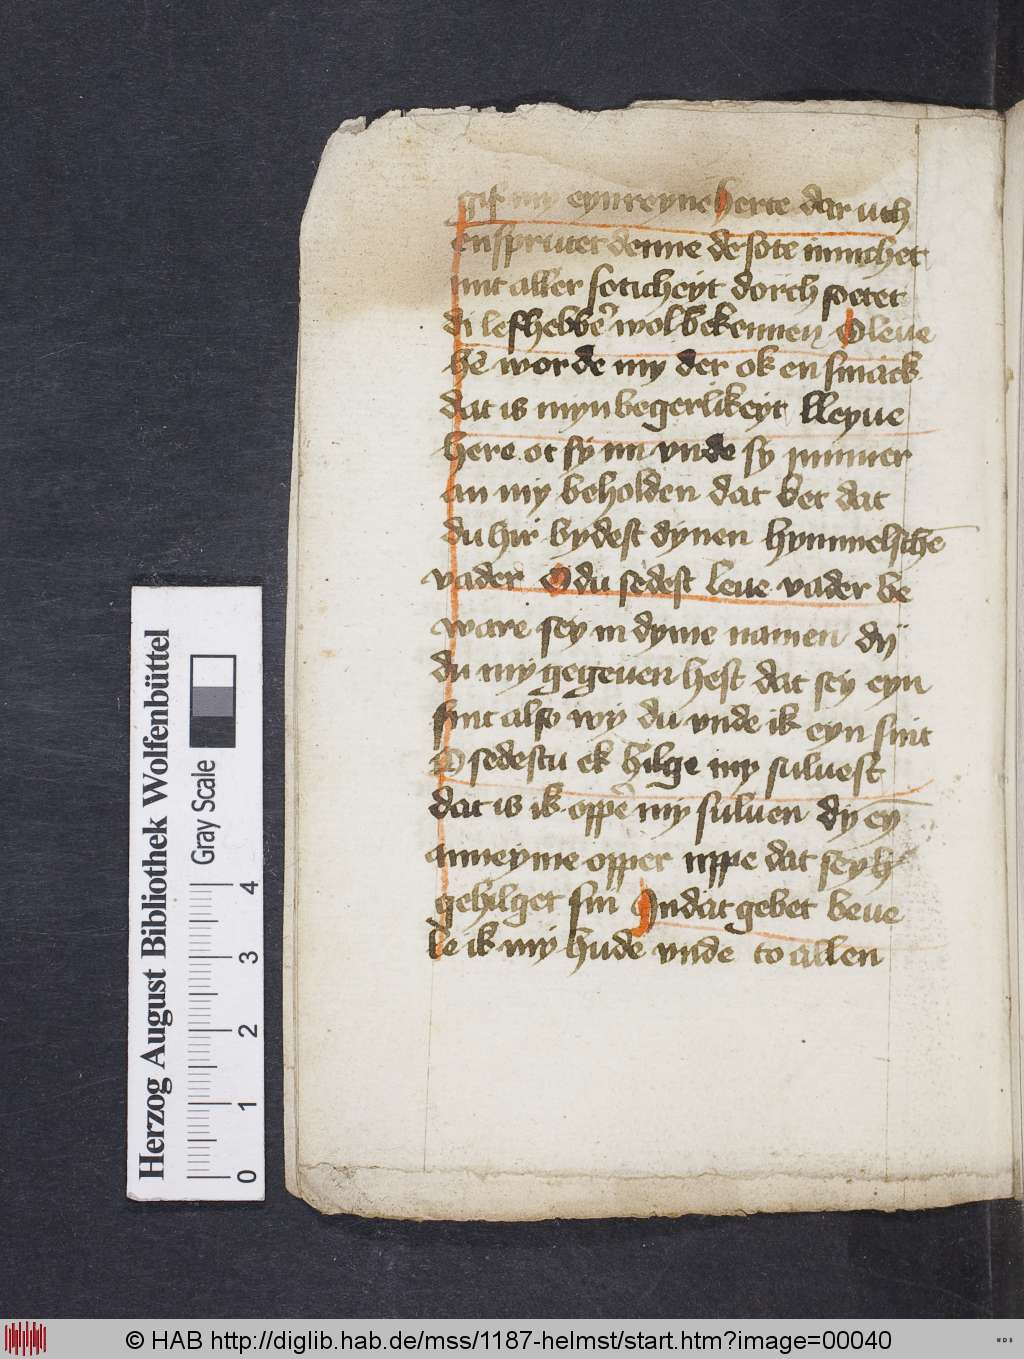 gif my eyn reyne herte dar uth
ensprutet denne de sote innicheit
mit aller soticheyt dorch sötet
di lefhebbe͛ wol bekennen O leue
he͛ worde my der ok en smack
dat is myn begerlikeyt lleyue
here ot sy nu vnde sy ummer
an my beholden dat bet dat
du hir bydest dynen hymmelsche͂
vader O du sedest leue vader be
ware sey in dyme namen dÿ
du my gegeuen hest dat sey eyn
sint also wy du vnde ik eyn sint
O sedestu ek hilge my suluest
dat is ik oppe͛ my suluen dy ey
anneyme opper uppe dat sey
gehilget sin In dat gebet beue
le ik my hude vnde to allen
Herzog August Bibliothek Wolfenbüttel
Gray Scale
0 1 2 3 4
© HAB http://diglib.hab.de/mss/1187-helmst/start.htm?image=00040